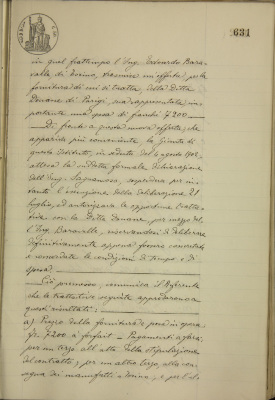 631
in quel frattempo l'Ing. Edoardo Bara-
valle, di Torino, trasmise un'offerta, per la
fornitura di cui si tratta, della Ditta
di Parigi, sua rappresentata, im-
portante una spesa di franchi 7200
Di fronte a questa nuova offerta, che
apparirebbe più conveniente, la Giunta di
questo Istituto, in seduta del 6 agosto 1902,
attesa la suddetta formale dichiarazione
dell'Ing. Sospendeva per in-
tanto l'esecuzione della deliberazione 21
luglio, ed autorizzava le opportune tratta-
tive con la Ditta per mezzo del-
l'Ing. Baravalle, riservandosi di deliberare
definitivamente appena fossero concertate
e concordate le condizioni di tempo e di
spesa.
Ciò premesso, comunica il Referente
che le trattative seguite approdarono a
questi risultati:
a) Prezzo della fornitura e posa in opera
fr. 7200 a forfait - Pagamenti a farsi:
per un terzo, all'atto della stipulazione
del contratto; per un altro terzo, alla con-
segna dei manufatti a Torino, e per l'al-